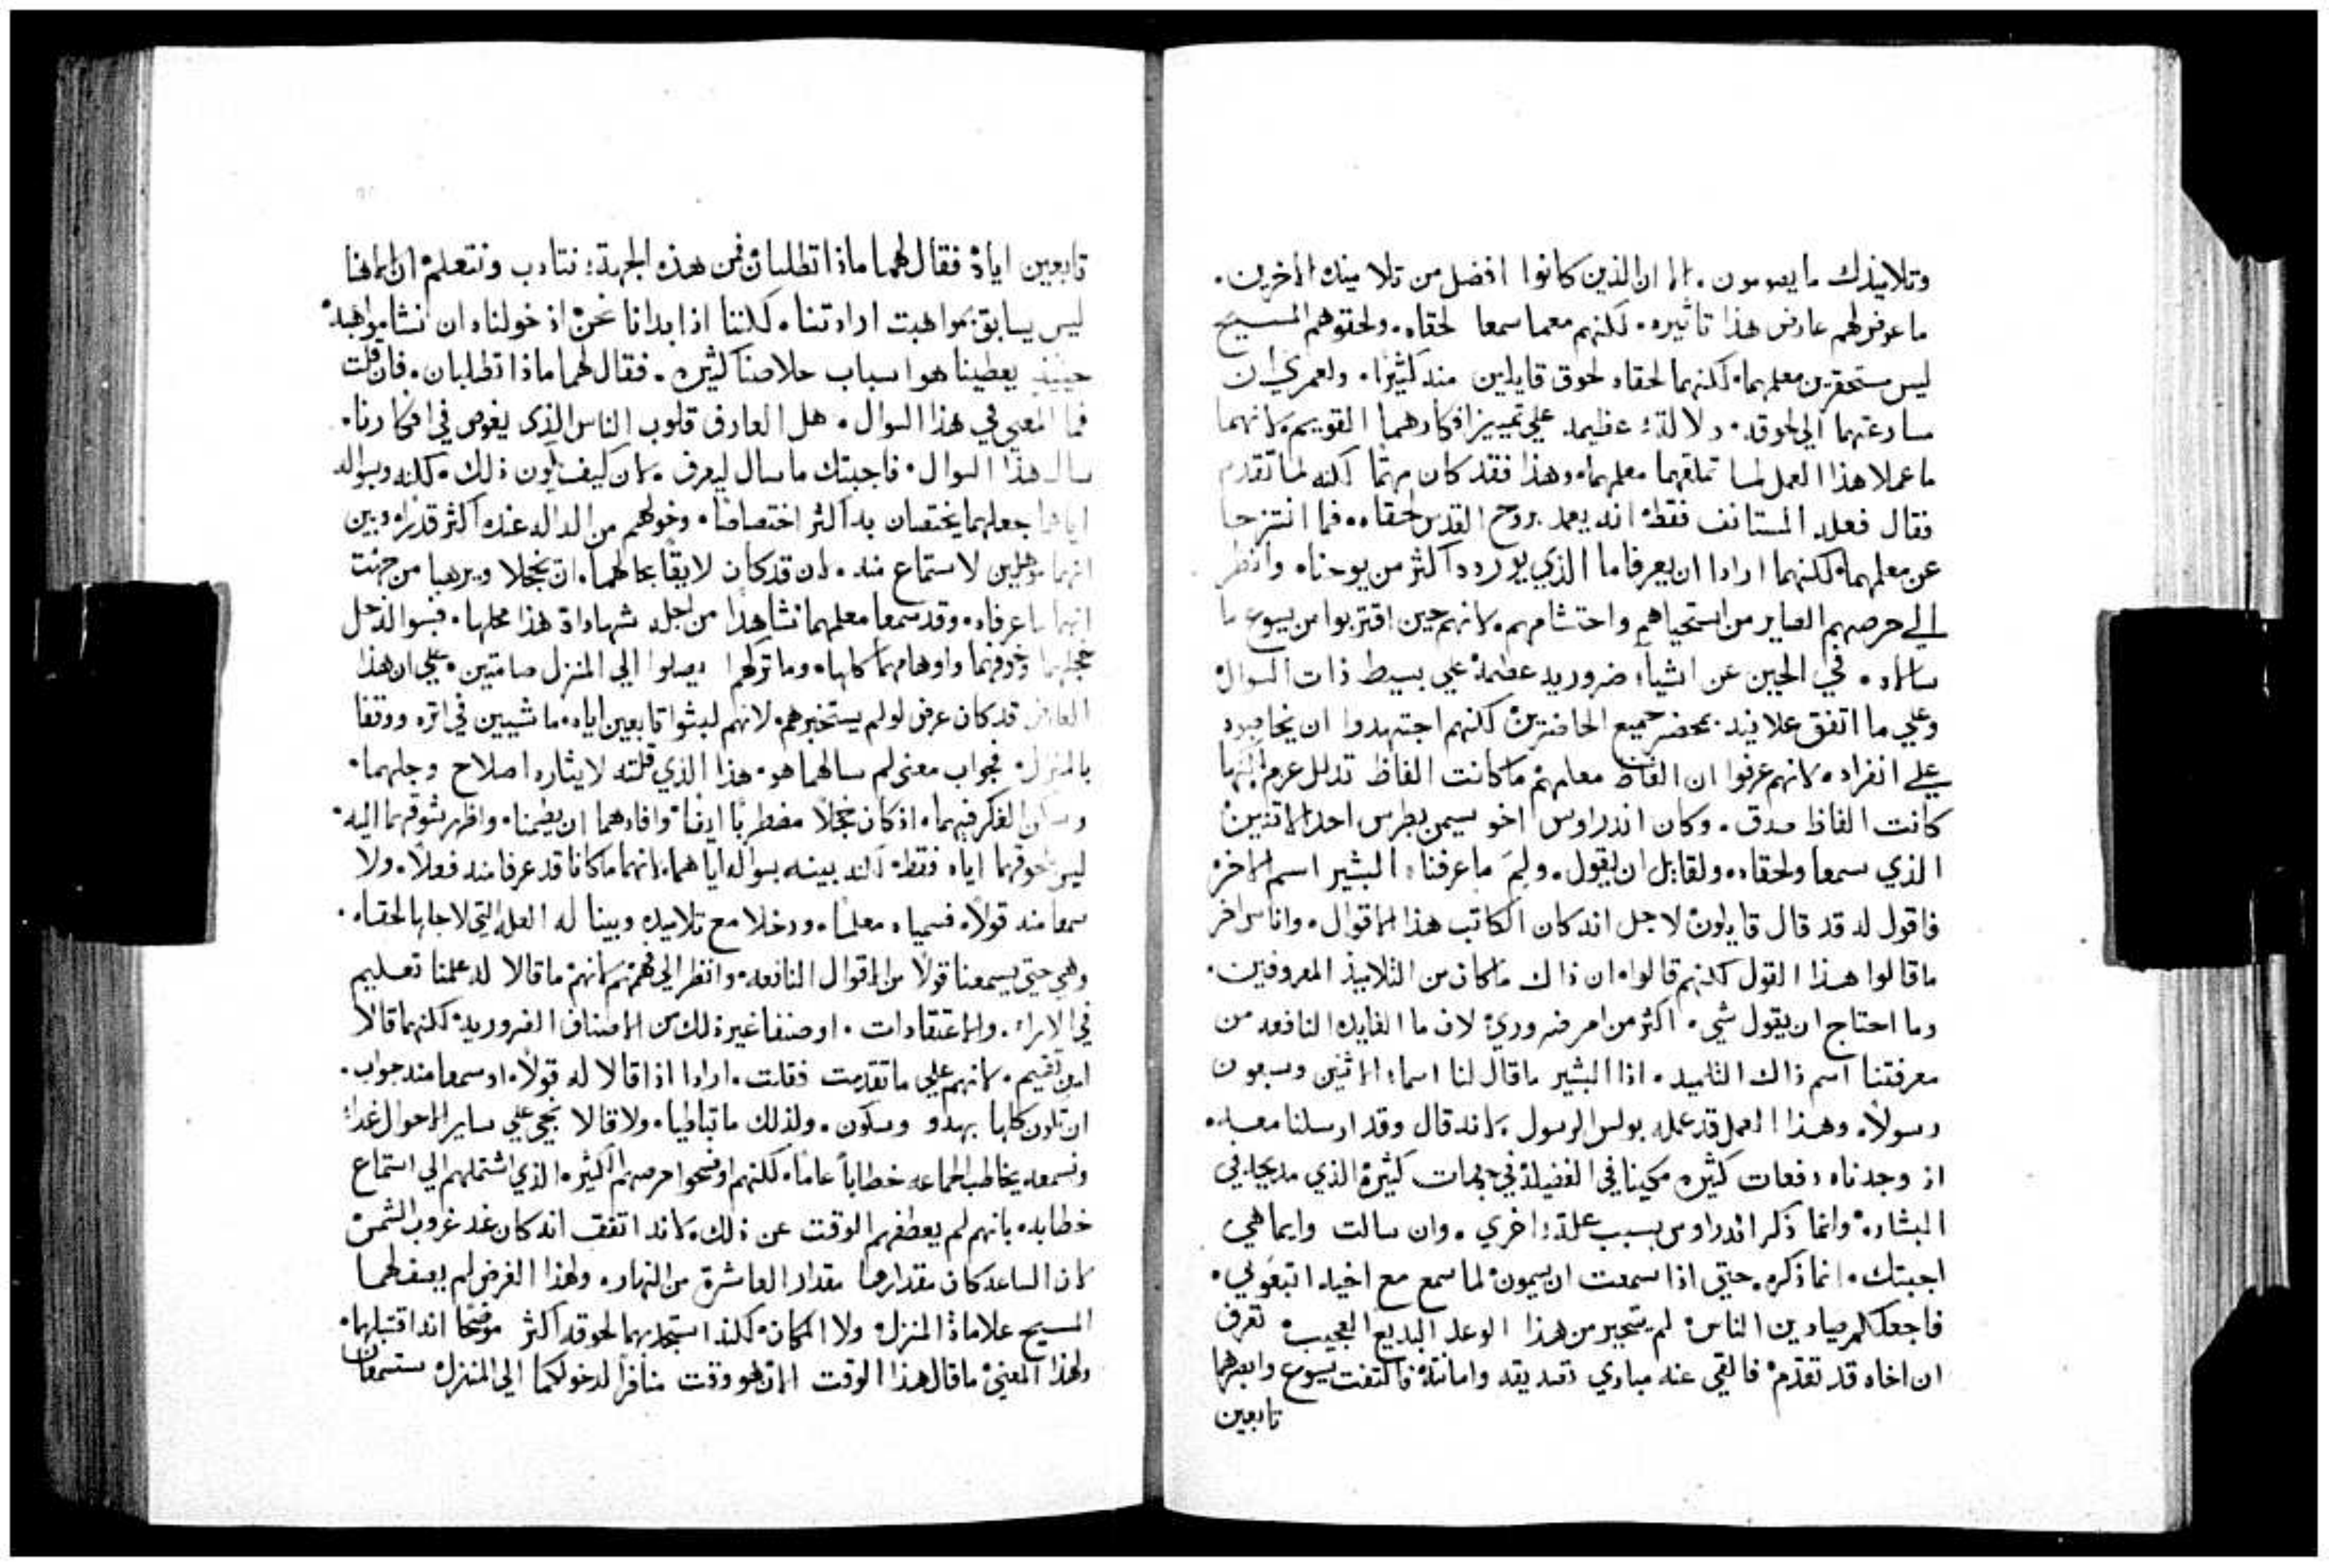 وتلاميذك ما يصومون. الا ان الذين كانوا افضل من تلاميذه الاخرين.
ما عوض لهم عارض هذا تاثيره. لكنهم معما سمعا لحقاه. ولحقوهم المسيح
ليس مستحقرين معلمهما. لكنهما لحقاه لحوق قايلين منه كثيرًا. ولعمري ان
مسارعتهما الي لحوقه. دلالة عظيمه علي تمييز افكارهما القويم. لانهما
ما عملا هذا العمل لما تملقهما معلمهما. وهذا فقد كان متهمًا لكنه لما تقدم
فقال فعله المستانف فقط. انه يعمد بروح القدس لحقاه. فما انتزحا
عن معلمهما. لكنهما ارادا ان يعرفا ما الذي يورده اكثر من يوحنا. وانظر
الي حرصهم الصاير من استحياهم واحتشامهم. لانهم حين اقتربوا من يسوع ما
سالاه. في الحين عن اشياء ضروريه عظمة علي بسيط ذات السوال
وعلي ما اتفق علانيه بمحضر جميع الحاضرين لكنهم اجتهدوا ان يخاطبوه
علي انفراد. لانهم عرفوا ان الفاظ معلمهم ما كانت الفاظ تذلل عزم لكنها
كانت الفاظ صدق. وكان اندراوس اخو سيمن بطرس احد الاثنين
الذي سمعا ولحقاه. ولقايل ان يقول. ولِمَ ما عرفنا البشير اسم الاخر
فاقول له قد قال قايلون لاجل انه كان الكاتب هذا الاقوال. واناس اخر
ما قالوا هذا القول لكنهم قالوا. ان ذاك ما كان من التلاميذ المعروفين.
وما احتاج ان يقول شي. اكثر من امر ضروري لان ما الفايده النافعه من
معرفتنا اسم ذاك التلميد. اذا البشير ما قال لنا اسماء الاثنين وسبعون
رسولاً. وهذا العمل قد عمله بولس الرسول. لانه قال وقد ارسلنا معه.
اذ وجدناه دفعات كثيره مكينا في الفضيلة في جهات كثيرة الذي مديحه في
البشاره وانما ذكر اندراوس بسبب علة اخري. وان سالت وايما هي
اجبتك. انما ذكره. حتي اذا سمعت ان سيمون لما سمع مع اخيه اتبعوني.
فاجعلكم صيادين الناس لم يتحير من هذا الوعد البديع العجيب تعرف
ان اخاه قد تقدم فالقي عنه مبادي تصديقه وامانته فالتفت يسوع وابصرهما
تابعين
تابعين اياه فقال لهما ماذا تطلبان فمن هذه الجهة نتادب ونتعلم ان الاهنا
ليس يسابق بمواهبه ارادتنا. لكننا اذا بدانا نحن اذ خولناه ان نشا مواهبه
حينيذٍ يعطينا هو اسباب خلاصنا كثيره. فقال لهما ماذا تطلبان. فان قلت
فما المعني في هذا السوال. هل العارف قلوب الناس الذي يغوص في افكارنا.
سال هذا السوال. فاجبتك ما سال ليعرف. لان كيف يكون ذلك. لكنه وبسواله
اياهما جعلهما يختصان به اكثر اختصاصًا. وخولهم من الداله عنده اكثر قدرًا. وبين
انهما موهلين لاستماع منه. لان قد كان لايقًا بحالهما. ان يخجلا ويرهبا من جهت
انهما ما عرفاه. وقد سمعا معلمهما نشاهدا من اجله شهاداة هذا محلها. فبسواله حل
خجلهما وخوفهما واوهامهما كلها. وما تركهما يصلوا الي المنزل صامتين. علي ان هذا
العارض قد كان عرض لو لم يستخبرهم. لانهم لبثوا تابعين اياه. ماشيين في اثره ووقفا
بالمنزل. فجواب معني لم سالهما هو. هذا الذي قلته لايثاره اصلاح وجلهما.
وسكن الفكر فيهما. اذ كان خجلاً مضطربًا ايضًا وافادهما ان يطيمنا. واظهر شوقهما اليه.
ليس بلحوقهما اياه فقط. لكنه بينه بسواله اياهما. لانهما ما كانا قد عرفا منه فعلاً. ولا
سمعا منه قولاً. فسمياه معلمًا. ودخلا مع تلاميذه وبينا له العله التي لاجلها لحقاه.
وهي حتي يسمعنا قولاً من الاقوال النافعه. وانظر الي فهمهم لانهم ما قالا له علمنا تعليم
في الاراء. والاعتقادات. او صنفا غير ذلك من الاصناف الضروريه لكنهما قالا
اين تقيم. لانهم علي ما تقدمت فقلت. ارادا اذا قالا له قولاً. او سمعا منه جواب.
ان تكون كلها بهدو وسكون. ولذلك ما تباطيا. ولا قالا نجي علي ساير الاحوال غداً
ونسمعه يخاطب الجماعه خطاباً عاماً. لكنهم اوضحوا حرصهم الكثيره الذي اشتملهم الي استماع
خطابه. بانهم لم يعطفهم الوقت عن ذلك. لانه اتفق انه كان عند غروب الشمس
لان الساعه كان مقدارها مقدار العاشرة من النهار. ولهذا الغرض لم يصف لهما
المسيح علاماة المنزل ولا المكان. لكنه استجذبهما لحوقه اكثر موضحًا انه اقتبلهما.
ولهذا المعني ما قال هذا الوقت الان هو وقت منافرًا لدخولكما الي المنزل ستسمعان